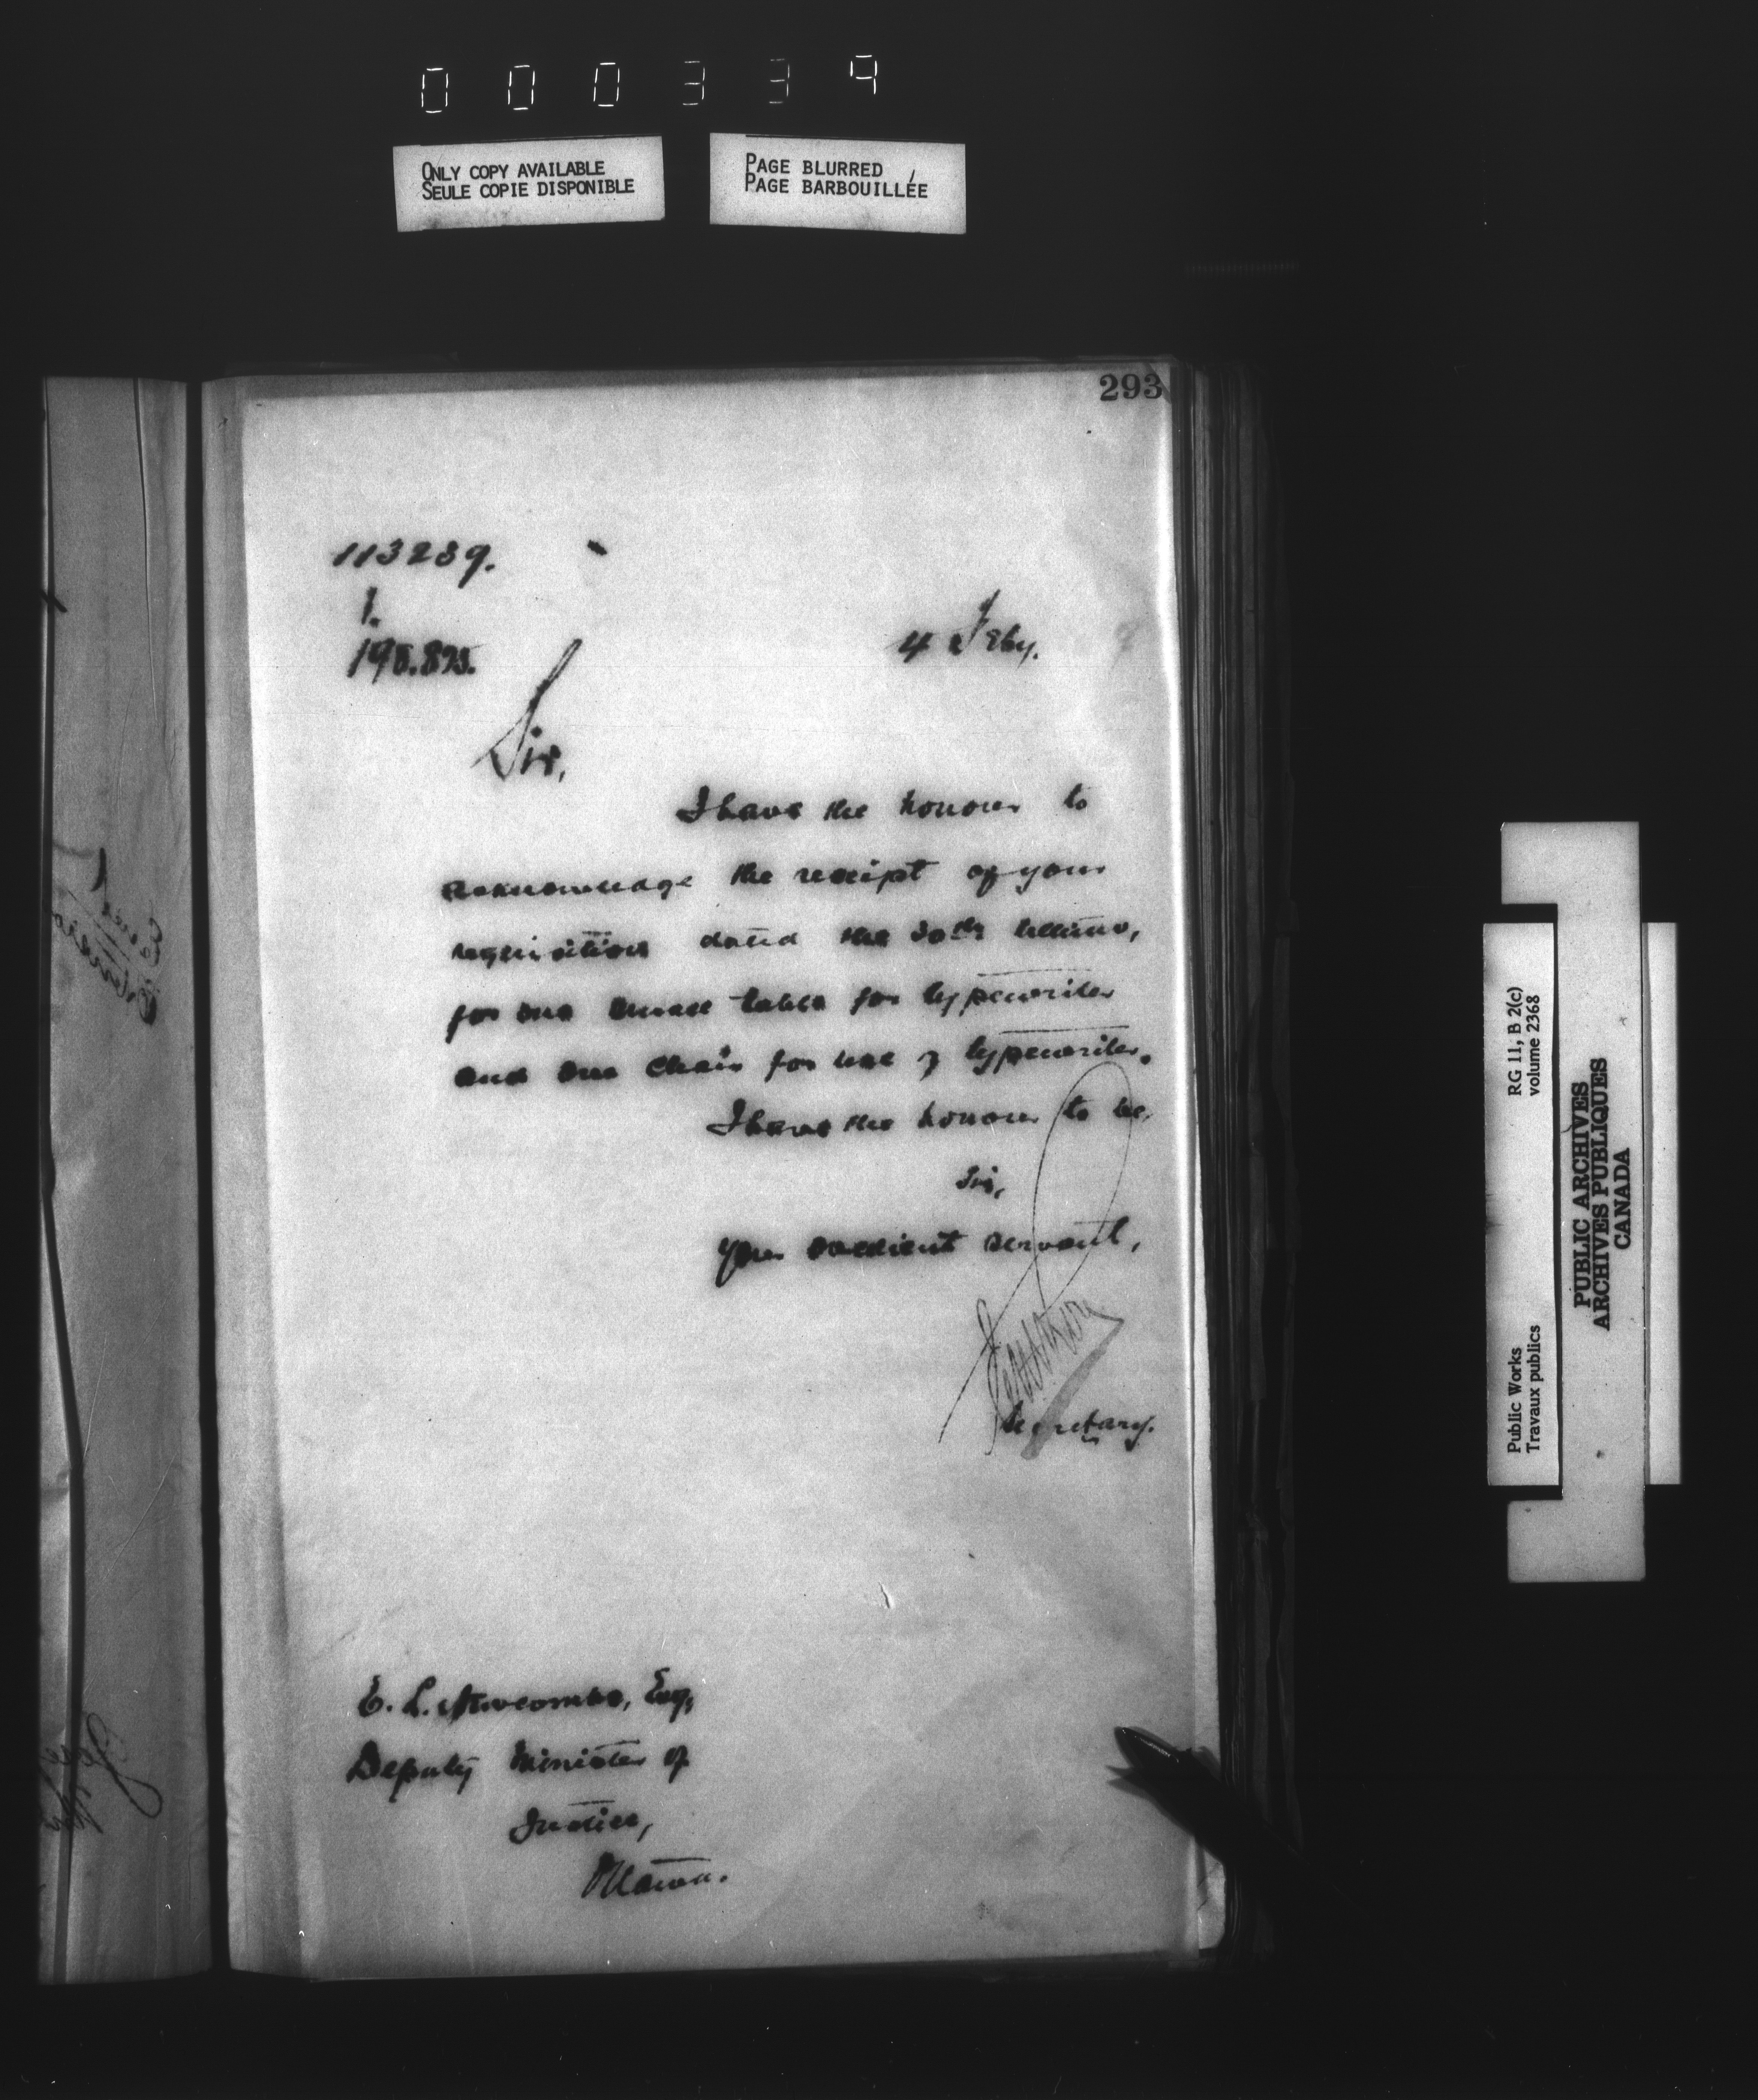 000339
ONLY COPY AVAILABLE
SEULE COPIE DISPONIBLE
PAGE BLURRED
PAGE BARBOUILLÉE
293
113239.
1.
4 Feby.
Sir,
I have the honour to
acknowledge the receipt of your
requisition dated the 30th ultimo,
for one small table for typewriter
and one chair for use of typewriter.
I have the honour to be,
Sir,
Your obedient servant,
Secretary.
E. L. Newcombe, Esq,
Deputy Minister of
Justice,
Ottawa.
RG 11, B 2(c)
volume 2368
Public Works
Travaux publics
PUBLIC ARCHIVES
ARCHIVES PUBLIQUES
CANADA